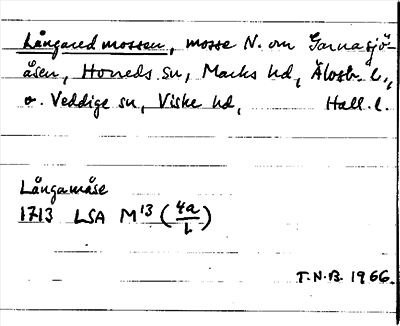 Långared mossen, mosse N. om Garnasjö-
åsen, Horreds sn, Marks hd, Älvsb. l.,
o. Veddige sn, Viske hd, Hall. l.
Långamåse
1713 LSA M¹³ (4a/L)
T.N.B. 1966.